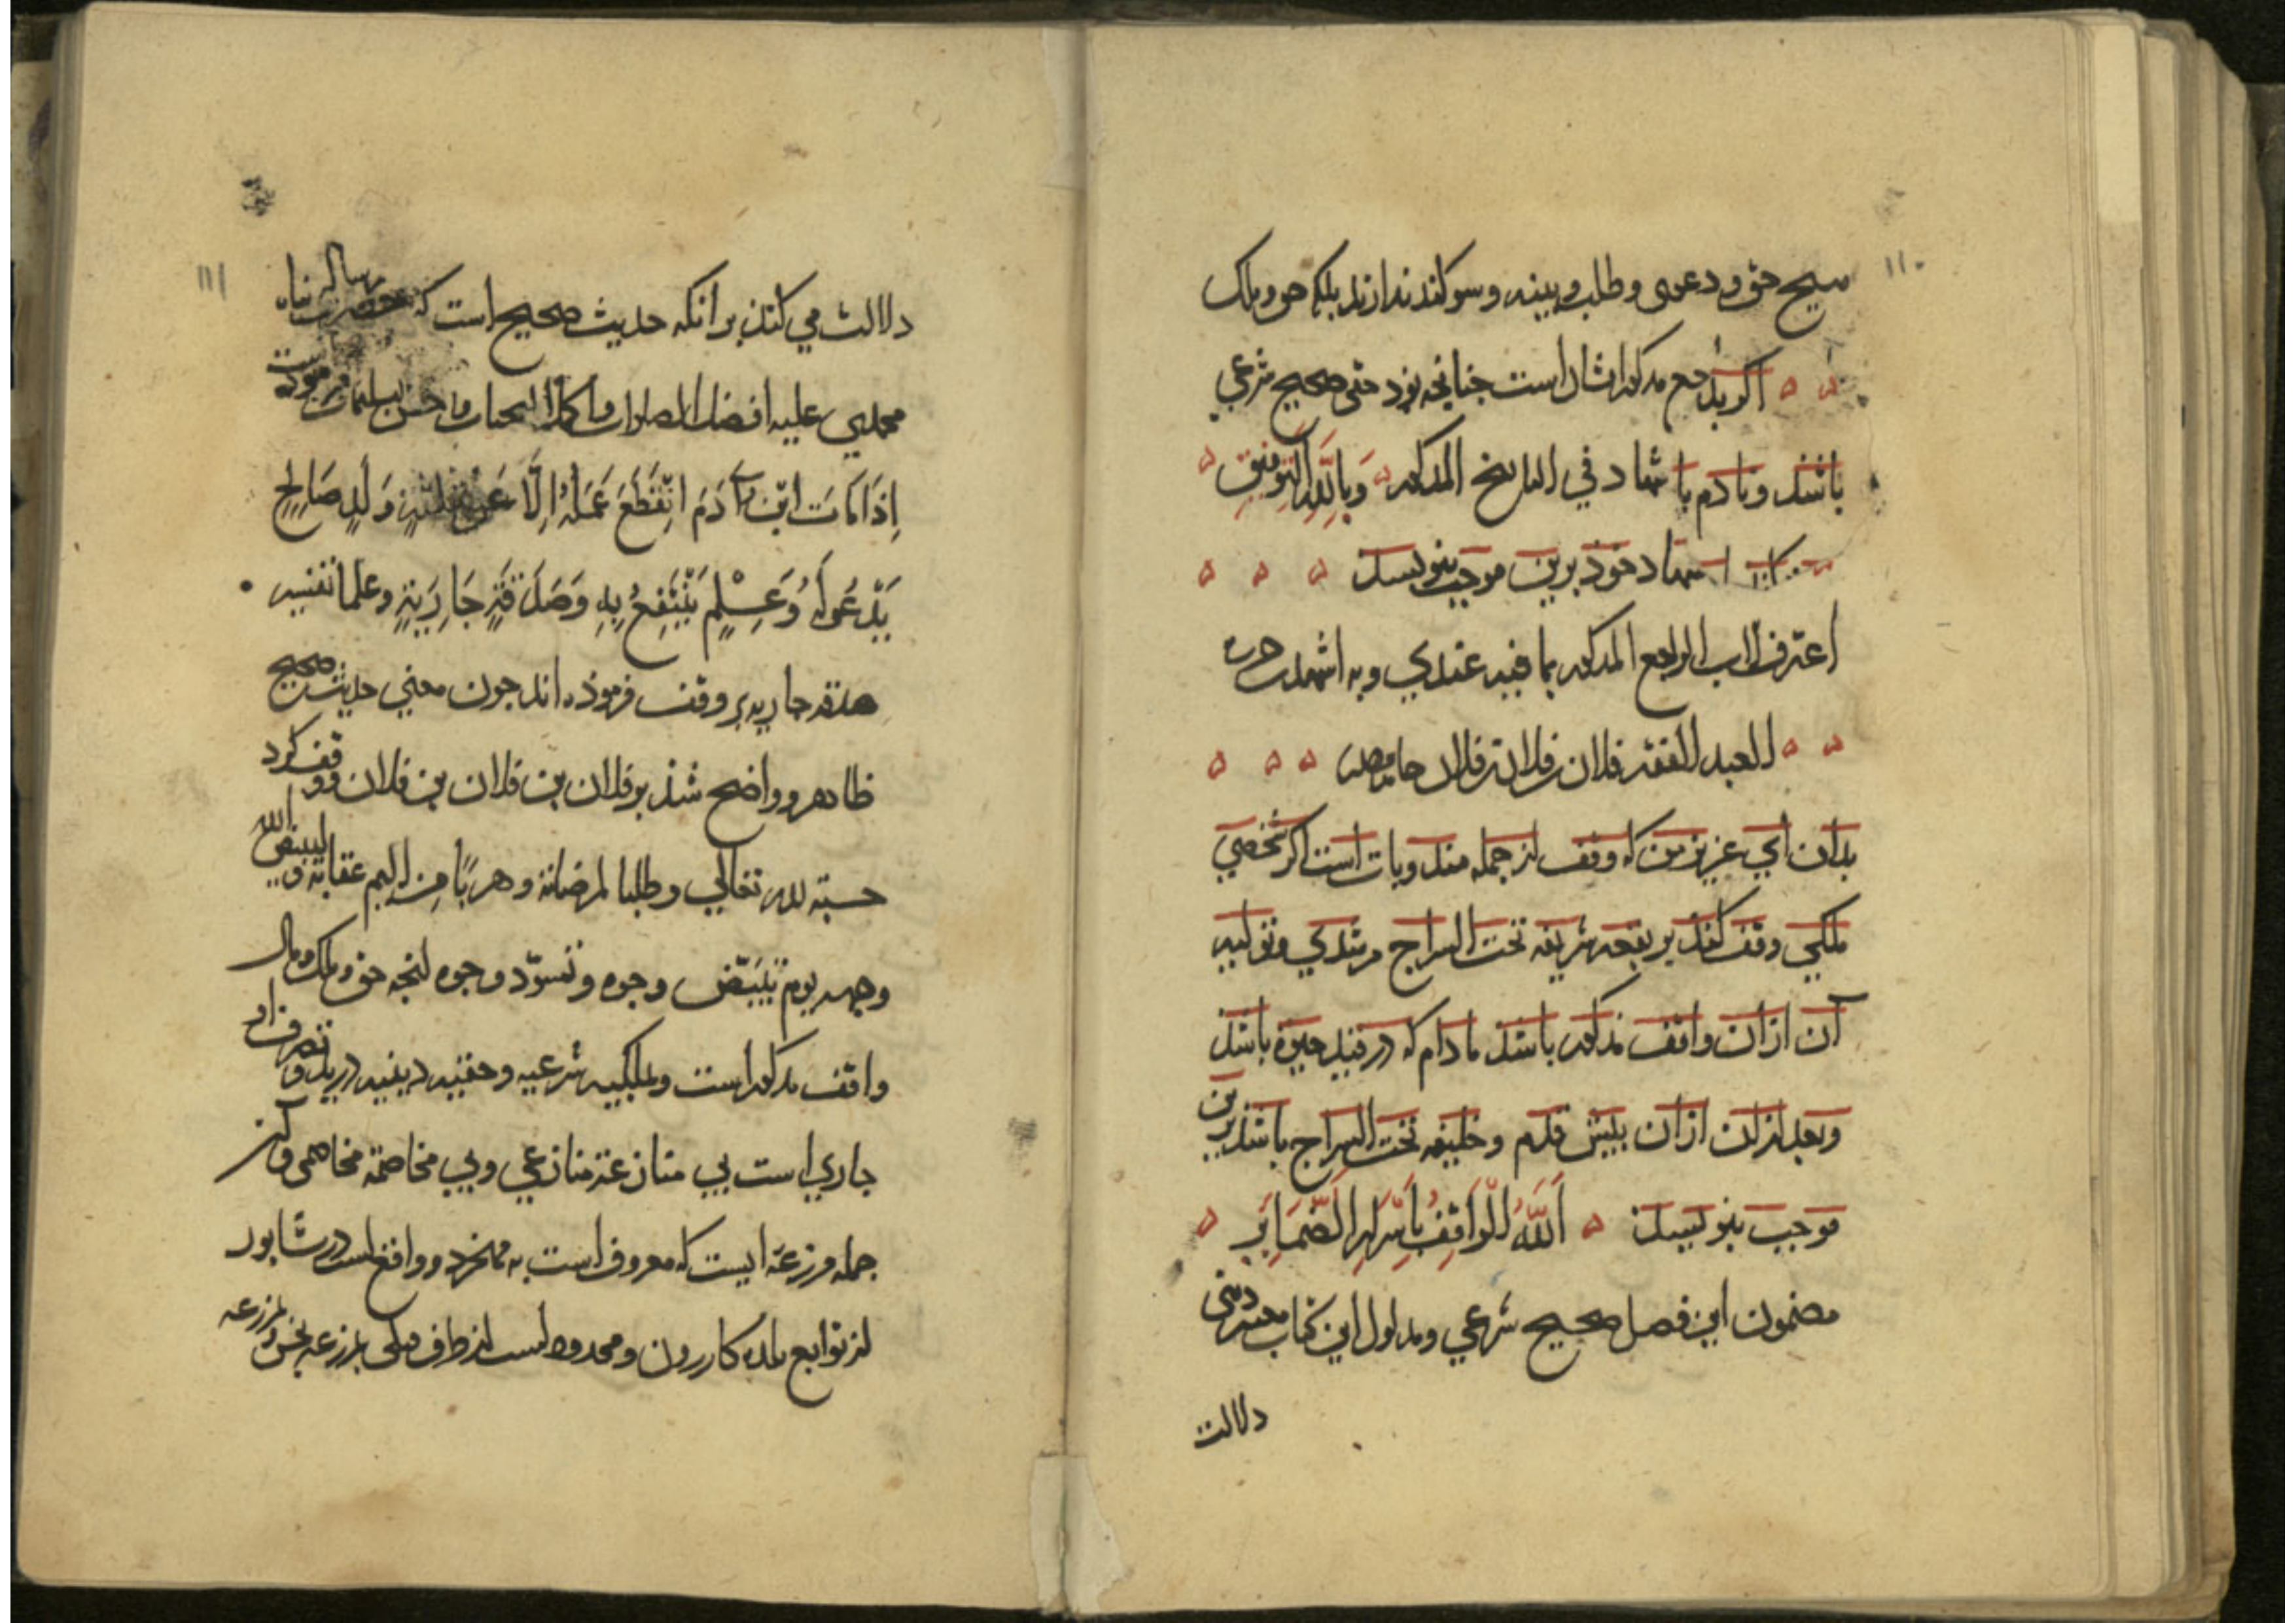 ۱۱۰
هیچ حق و دعوی و طلب و بینه و سوکند ندارند بلکه حق و ملک
اکر بد جمع مذکور ایشان است جنانچه بود حقی صحیح شرعی
باشذ و نادم باشهاد في التاریخ المذکور وبالله التوفیق
اشهاد خوذ برین موجب بنویسد
اعترف الاب الراجع المذکور بما فیه عندي وبه اشهد حرره
العبد الفقیر فلان بن فلان بن فلان حامدا
بدان اي عزیز من که وقف از جمله مندوبات است اکر شخصي
ملکي وقف کند بر بقعه شریفه تحت السراج مرشدي و تولیه
آن ازان واقف مذکور باشذ مادام که در قید حیوة باشذ
وبعد ازان ازان بیش قدم و خلیفه تحت السراج باشذ برین
موجب بنویسد اَللّٰهُ الْوَاقِفُ بِاَسْرَارِ الضَّمَایِرِ
مضمون این فصل صحیح شرعي و مدلول این کتاب معتبر دینی
دلالت
۱۱۱
دلالت مي کند بر انکه حدیث صحیح است که حضرت رسالت بناه
محمدي علیه افضل الصلوات و اکمل التحیات و احسن التسلیمات فرموذه است
اِذَا مَاتَ ابْنُ آدَمَ انْقَطَعَ عَمَلُهُ اِلَّا عَنْ ثَلٰثَةٍ وَلَدٍ صَالِحٍ
یَدْعُو لَهُ وَعِلْمٍ یُنْتَفَعُ بِهِ وَصَدَقَةٍ جَارِیَةٍ وعلما تفسیر
صدقه جاریه بر وقف فرموذه اند جون معني حدیث صحیح
ظاهر و واضح شذ بر فلان بن فلان بن فلان و وقف کرد
حسبة لله تعالي وطلبا لمرضاته وهربًا مِن الیم عقابه ولیبیض الله
وجهه یوم تَبْیَضّ وجوه وتسودّ وجوه انجه حق و ملک و مال
واقف مذکور است و ملکیه شرعیه و حقیه دینیه در ید و تصرف او
جاري است بي منازعة منازعي و بي مخاصمة مخاصمی و آن از
جمله مزرعه ایست که معروف است به و واقع است در شابور
از توابع بلده کازرون و محدود است از طرف بمزرعه مزرعه